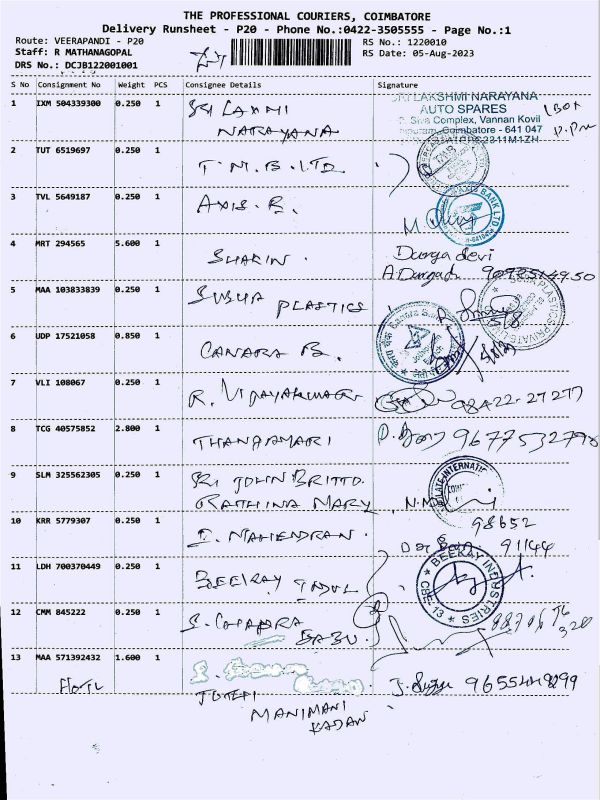 THE PROFESSIONAL COURIERS, COIMBATORE
Delivery Runsheet - P20 - Phone No.:0422-3505555 - Page No.:1
Route: VEERAPANDI - P20
Staff: R MATHANAGOPAL
DRS No.: DCJB122001001
RS No.: 1220010
RS Date: 05-Aug-2023
S No Consignment No Weight PCS Consignee Details Signature
1 IXM 504339300 0.250 1 SRI LAXMI
NARAYANA
SRI LAKSHMI NARAYANA
AUTO SPARES
Siva Complex, Vannan Kovil
Coimbatore - 641 047
1 BOX
2 TUT 6519697 0.250 1 T.M.B. LTD
TMB
3 TVL 5649187 0.250 1 AXIS. B.
AXIS BANK LTD
4 MRT 294565 5.600 1 SHARIN.
Durga devi
5 MAA 103833839 0.250 1 SUSHA PLASTICS
6 UDP 17521058 0.850 1 CANARA B.
Canara Bank
5/8/23
7 VLI 108067 0.250 1 R. VIJAYAKUMAR
98422-27277
8 TCG 40575852 2.800 1 THANGAMARI
9677532798
9 SLM 325562305 0.250 1 SRI JOHN BRITTO.
RATHINA MARY
10 KRR 5779307 0.250 1 I. MAHENDRAN.
98652
91144
11 LDH 700370449 0.250 1 BEEKAY INDUL
BEEKAY INDUSTRIES
CBE-13
12 CMM 845222 0.250 1 S. CHANDRA
BABU.
13 MAA 571392432 1.600 1
JOTHI
MANIMANI
KADAN